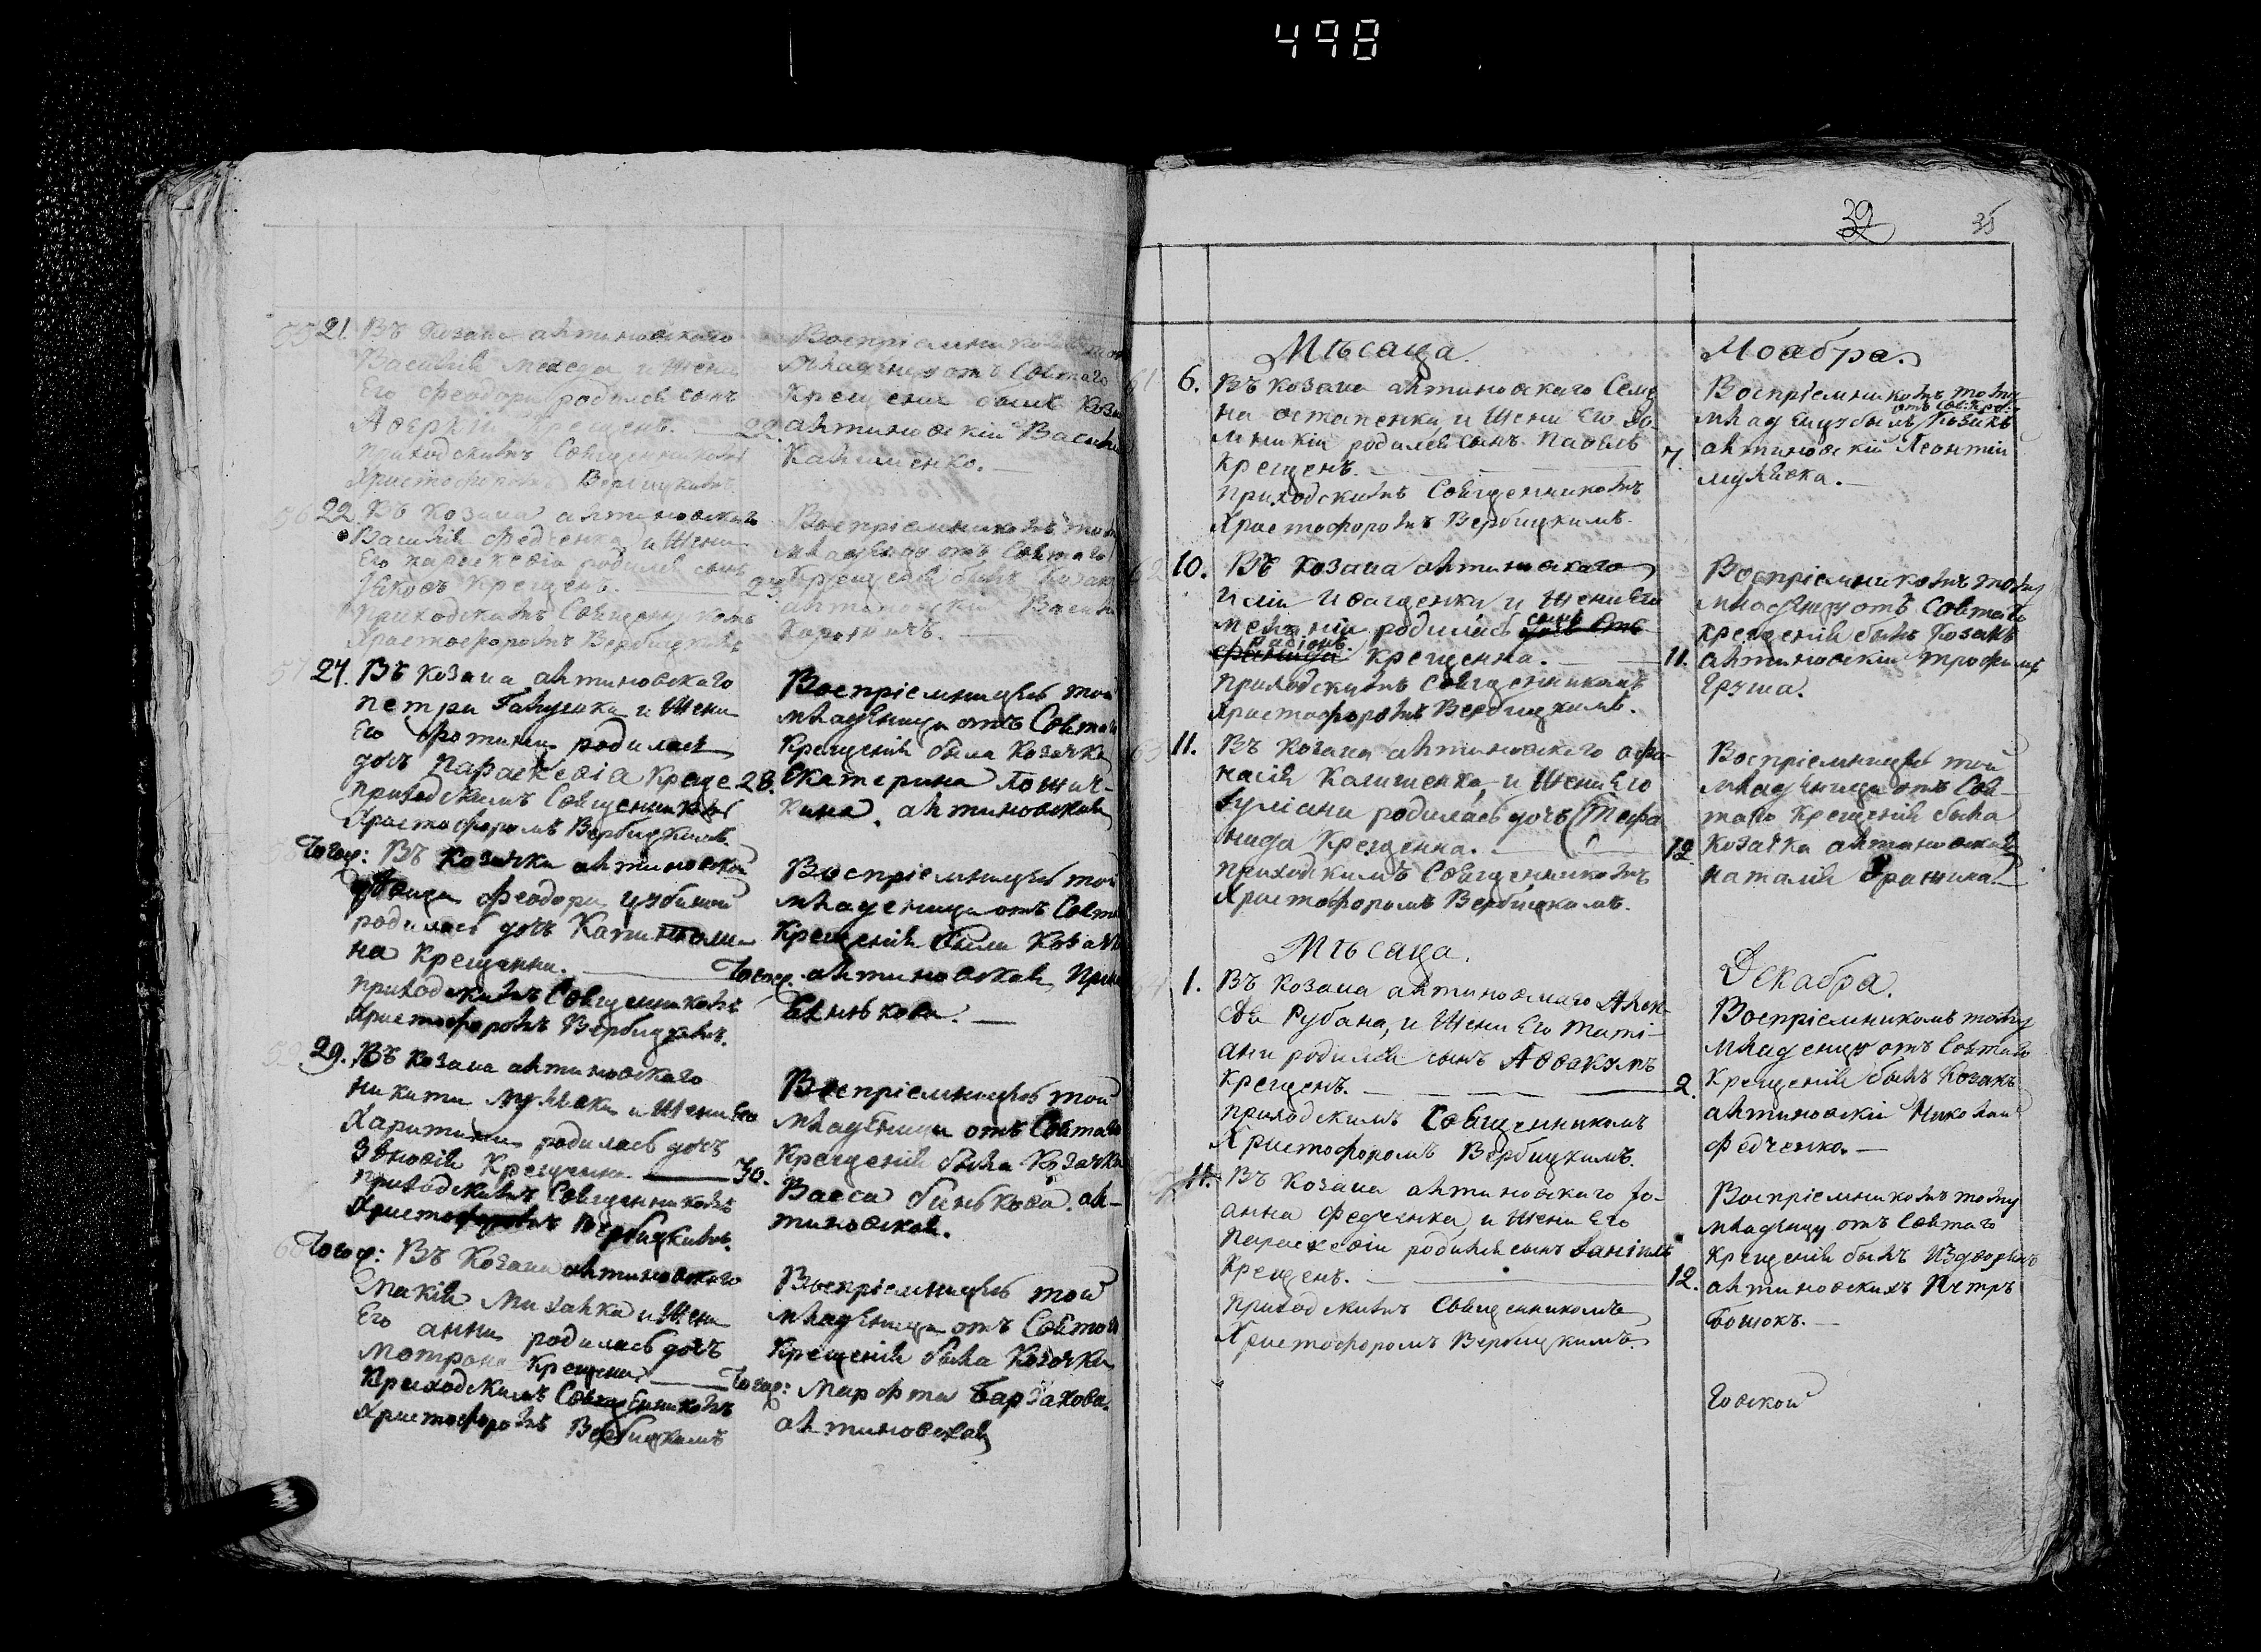 498
32
35
55 21. Въ Козака алтиновского
Василія и жени
Его Феодори родился сынъ
Аверкій Крещенъ. — 22.
приходскимъ Священникомъ
Христофоромъ Вербицкимъ
Воспріемникомъ
младенцу отъ Святаго
Крещения былъ Коза
алтиновскій Васили
Калишенко. —
56 22. Въ Козака алтиновского
Василія Федченка и жени
Его параскевіи родился сынъ
Яковъ Крещенъ. — 23.
приходскимъ Священникомъ
Христофоромъ Вербицкимъ
Воспріемникомъ
младенцу отъ Святаго
Крещенія былъ Козакъ
алтиновскій Васили
57 27. Въ Козака алтиновского
петра Галушка и жени
Его фотинии родилась
дочь параскевіа Креще 28.
приходскимъ Священникомъ
Христофоромъ Вербицкимъ.
Воспріемницею той
младеници отъ Святаго
Крещенія была Козачка
Екатерина
алтиновская
Тогож: Въ Козачки алтиновской
вдовици Феодори
родилась дочь Капитоли-
на Крещенна. — Тогож.
приходскимъ Священникомъ
Христофоромъ Вербицкимъ.
Воспріемницею той
младеници отъ Свят
Крещенія были Козач
алтиновская
59 29. Въ Козака алтиновского
никити мулявки и жени Его
Харитини родилась дочь
Зѣновія Крещенна — 30.
приходскимъ Священникомъ
Христофоромъ Вербицкимъ.
Воспріемницею той
младеници отъ Святаго
Крещенія была Козачка
Васса бинькова. ал-
тиновская.
60 Тогож: Въ Козака алтиновского
Макія Михалка и жени
Его анни родилась дочь
Мотрона Крещена — Тогож:
Приходскимъ Священникомъ
Христофоромъ Вербицкимъ
Воспріемницею той
младеници отъ Святаго
Крещенія была Козачка
Марфта Бардакова.
алтиновская
Мѣсаца.
Ноабра.
61 6. Въ козака алтиновскаго Семе
на остапенки, и жени Его До-
миникіи родился сынъ павелъ
Крещенъ. — 7.
приходскимъ Священникомъ
Христофоромъ Вербицкимъ.
Воспріемникомъ тому
младенцу былъ отъ Св: Кре: Козакъ
алтиновскій Леонтій
муливка. —
62 10. Въ Козака алтиновскаго
Иліи Иващенки и жени Его
меланіи родилась сынъ
Крещенна. — 11.
приходскимъ Священникомъ
Христофоромъ Вербицкимъ.
Воспріемникомъ тому
младенцу отъ Святаго
Крещенія былъ Козакъ
алтиновскій трофимъ
Груша.
63 11. Въ Козака алтиновского афа-
насія Калишенка, и жени Его
Іуліани родилась дочь Стефа
нида Крещенна. — 12
приходскимъ Священникомъ
Христофоромъ Вербицкимъ.
Воспріемницею той
младеници отъ Свя-
таго Крещенія была
Козачка алтиновская
Наталія —
Мѣсаца.
Декабра.
64 1. Въ Козака алтиновскаго Алек-
сѣя Рубана, и жени Его тати-
ани родился сынъ Аввакумъ
Крещенъ. — 2.
приходскимъ Священникомъ
Христофоромъ Вербицкимъ.
Воспріемникомъ тому
младенцу отъ Святаго
Крещенія былъ Козакъ
алтиновскій Николай
Федченко. —
11. Въ Козака алтиновскаго Іо-
анна Федченка, и жени Его
Параскевіи родился сынъ Даніилъ
Крещенъ. — 12.
приходскимъ Священникомъ
Христофоромъ Вербицкимъ.
Воспріемникомъ тому
младенцу отъ Святаго
Крещенія былъ
алтиновскихъ Петръ
Божокъ. —